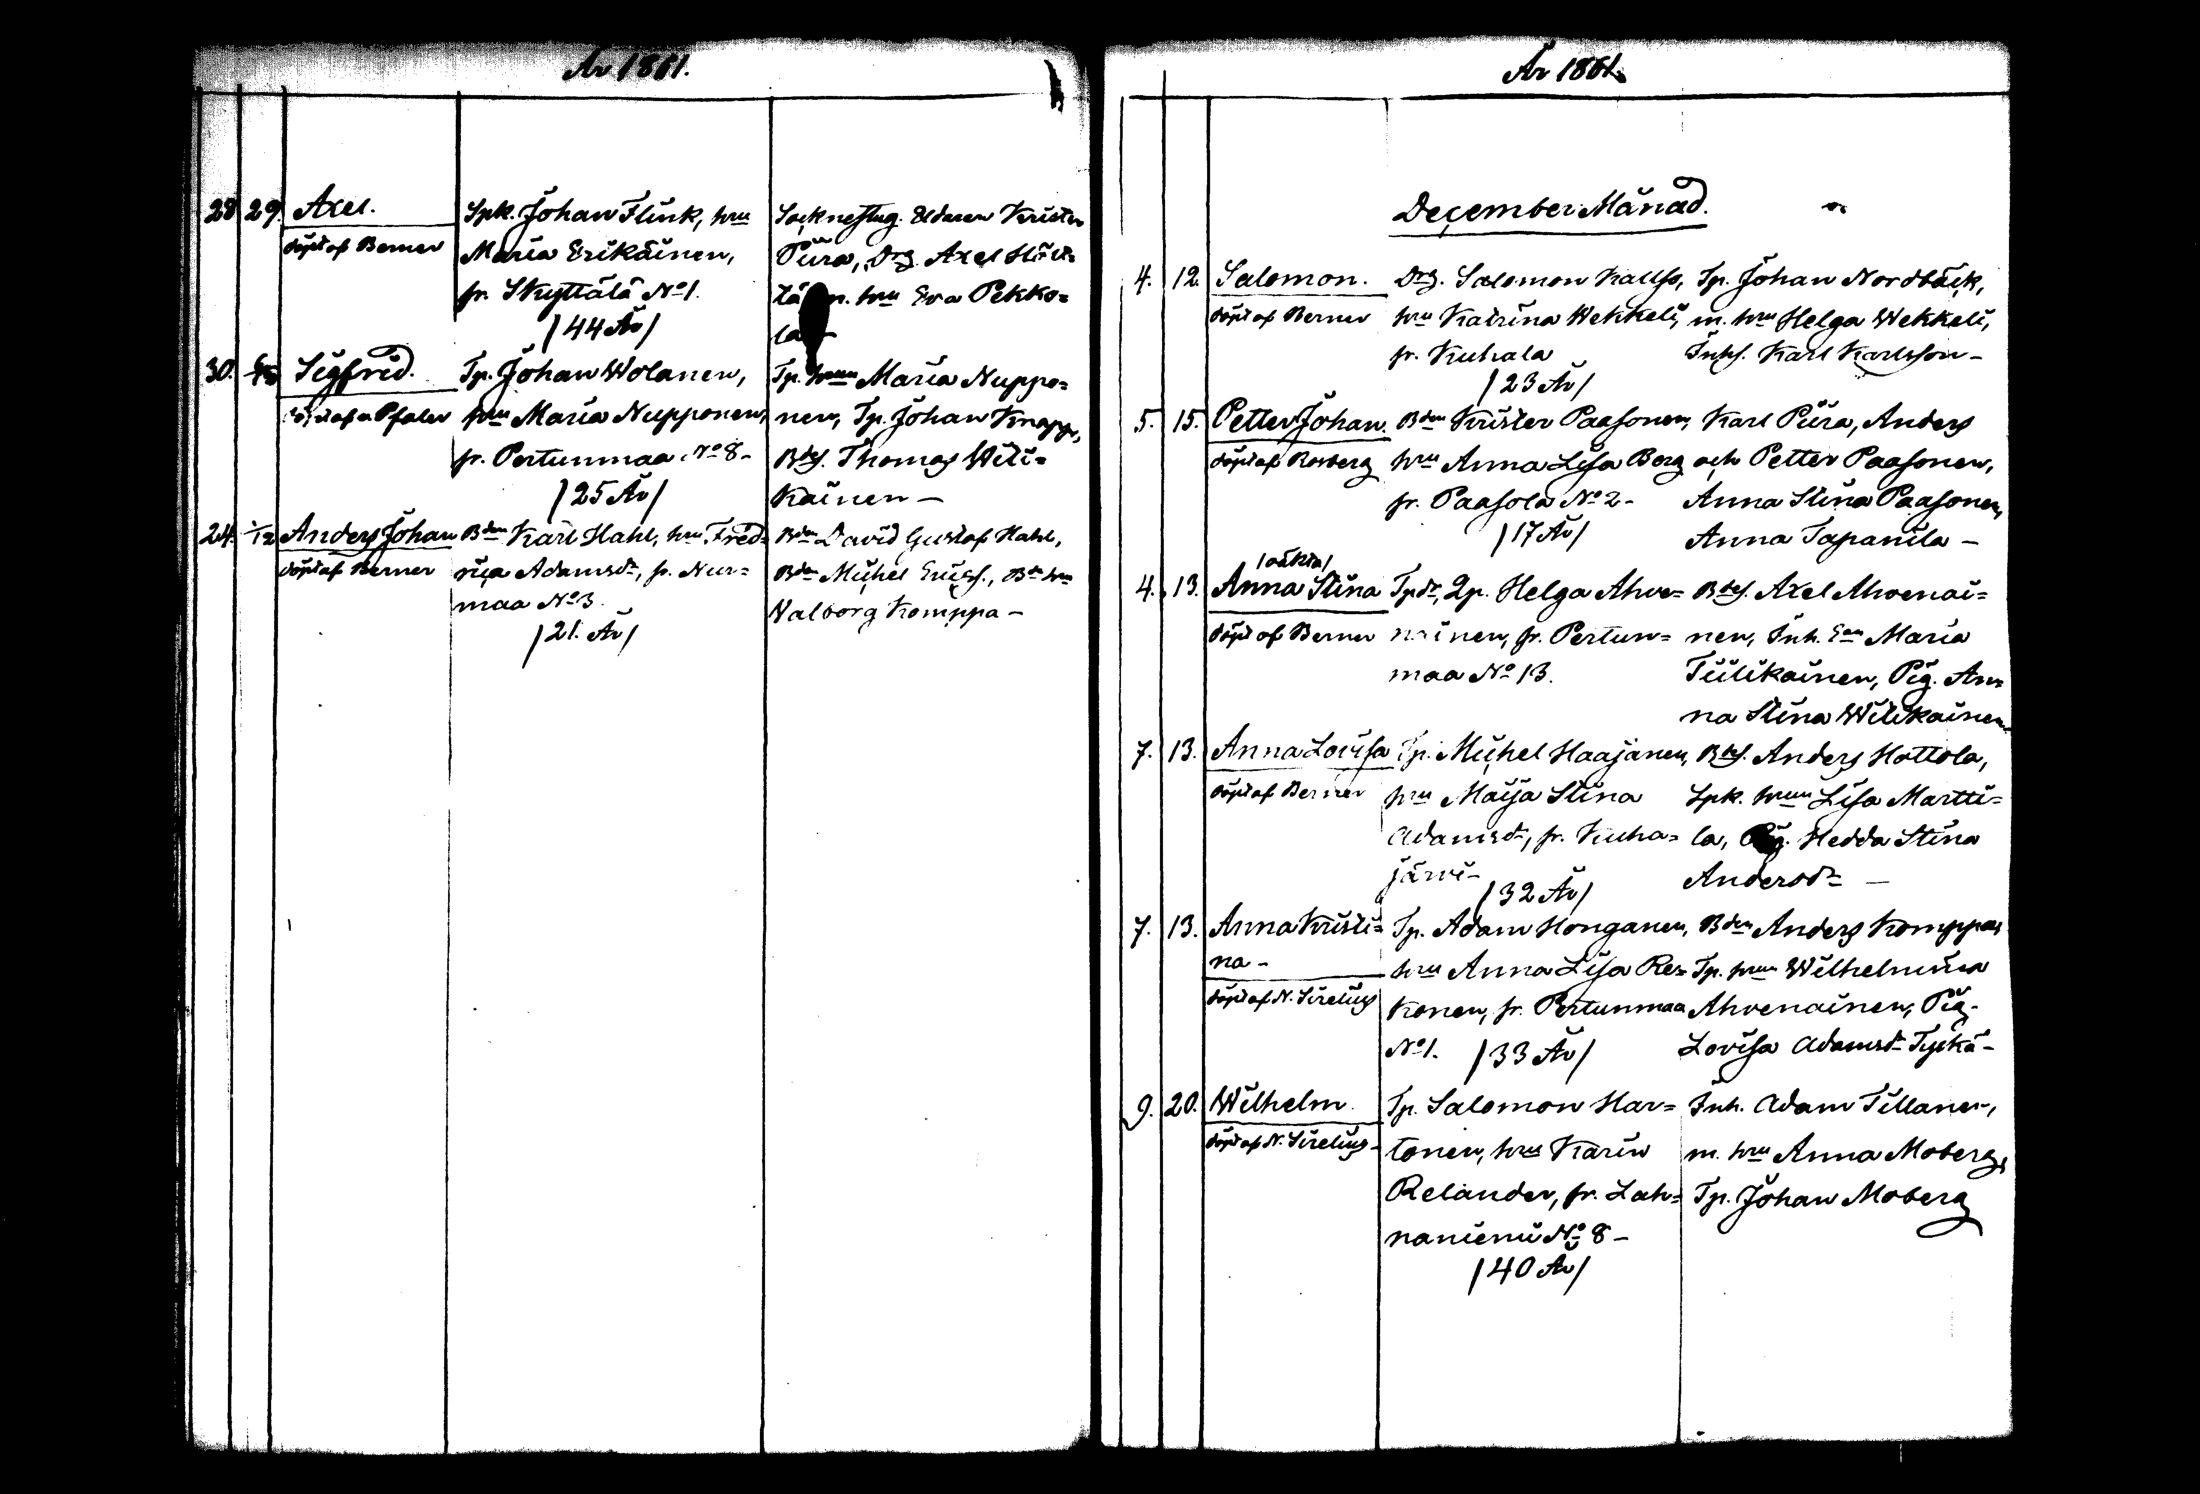 År 1861.
28 29. Axel.
döpt af Berner
Spk. Johan Flink, hru
Maria Erikäinen,
fr. Skyttälä No 1.
/44 År/
Sockneskug. Eldaren Krister
Piira, Drg. Axel
hru Eva Pekko=
la
30. Sigfrid.
döpt af a Pfaler
Tp. Johan Wolanen,
hru Maria Nupponen,
fr. Pertunmaa No 8-
/25 År/
Tp. hrun Maria Nuppo=
nen, Tp. Johan Knapp,
Bdes. Thomas Wili=
kainen -
24. 1/12 Anders Johan
döpt af Berner
Bden Karl Hahl, hru Fred=
rica Adamsdr, fr. Nur=
maa No 3.
/21. År/
Bden David Gustaf Hahl,
Bden Michel Ericss., Bde hru
Walborg Komppa -
År 1861.
December Månad.
4. 12. Salomon.
döpt af Berner
Drg. Salomon Kallss,
hru Katrina Wekkeli,
fr. Kuhala
/23 År/
Tp. Johan Nordbäck,
m. hru Helga Wekkeli,
Inhs. Karl Karlsson -
5. 15. Petter Johan.
döpt af Rosberg
Bden Krister Paasonen,
hru Anna Lisa Borg
fr. Paasola No 2-
/17 År/
Karl Piira, Anders
och Petter Paasonen,
Anna Stina Paasonen,
Anna Tapanila -
/oäkta/
4. 13. Anna Stina
döpt af Berner
Tpdr, Qp. Helga Ahve=
nainen, fr. Pertun=
maa No 13.
Bdes. Axel Ahvenai=
nen, Inh. Ean Maria
Tiilikainen, Pig. An=
na Stina Wilikainen
7. 13. Anna Lovisa
döpt af Berner
Tp. Michel Haajanen,
hru Maija Stina
Adamsdr, fr. Kuha=
järvi-
/32 År/
Bdes. Anders Hottola,
Spk. hrun Lisa Martti=
la, Pig. Hedda Stina
Andersdr -
7. 13. Anna Kristi=
na -
döpt af N. Sirelius
Tp. Adam Honganen,
hru Anna Lisa Res=
konen, fr. Pertunmaa
No 1. /33 År/
Bden Anders Komppa,
Tp. hrun Wilhelmina
Ahvenainen, Pig.
Lovisa Adamsdr Tyskä -
9. 20. Wilhelm.
döpt af N. Sirelius -
Tp. Salomon Har=
tonen, hru Karin
Relander, fr. Lah=
naniemi No 8 -
/40 År/
Inh. Adam Tillanen,
m. hru Anna Moberg,
Tp. Johan Moberg